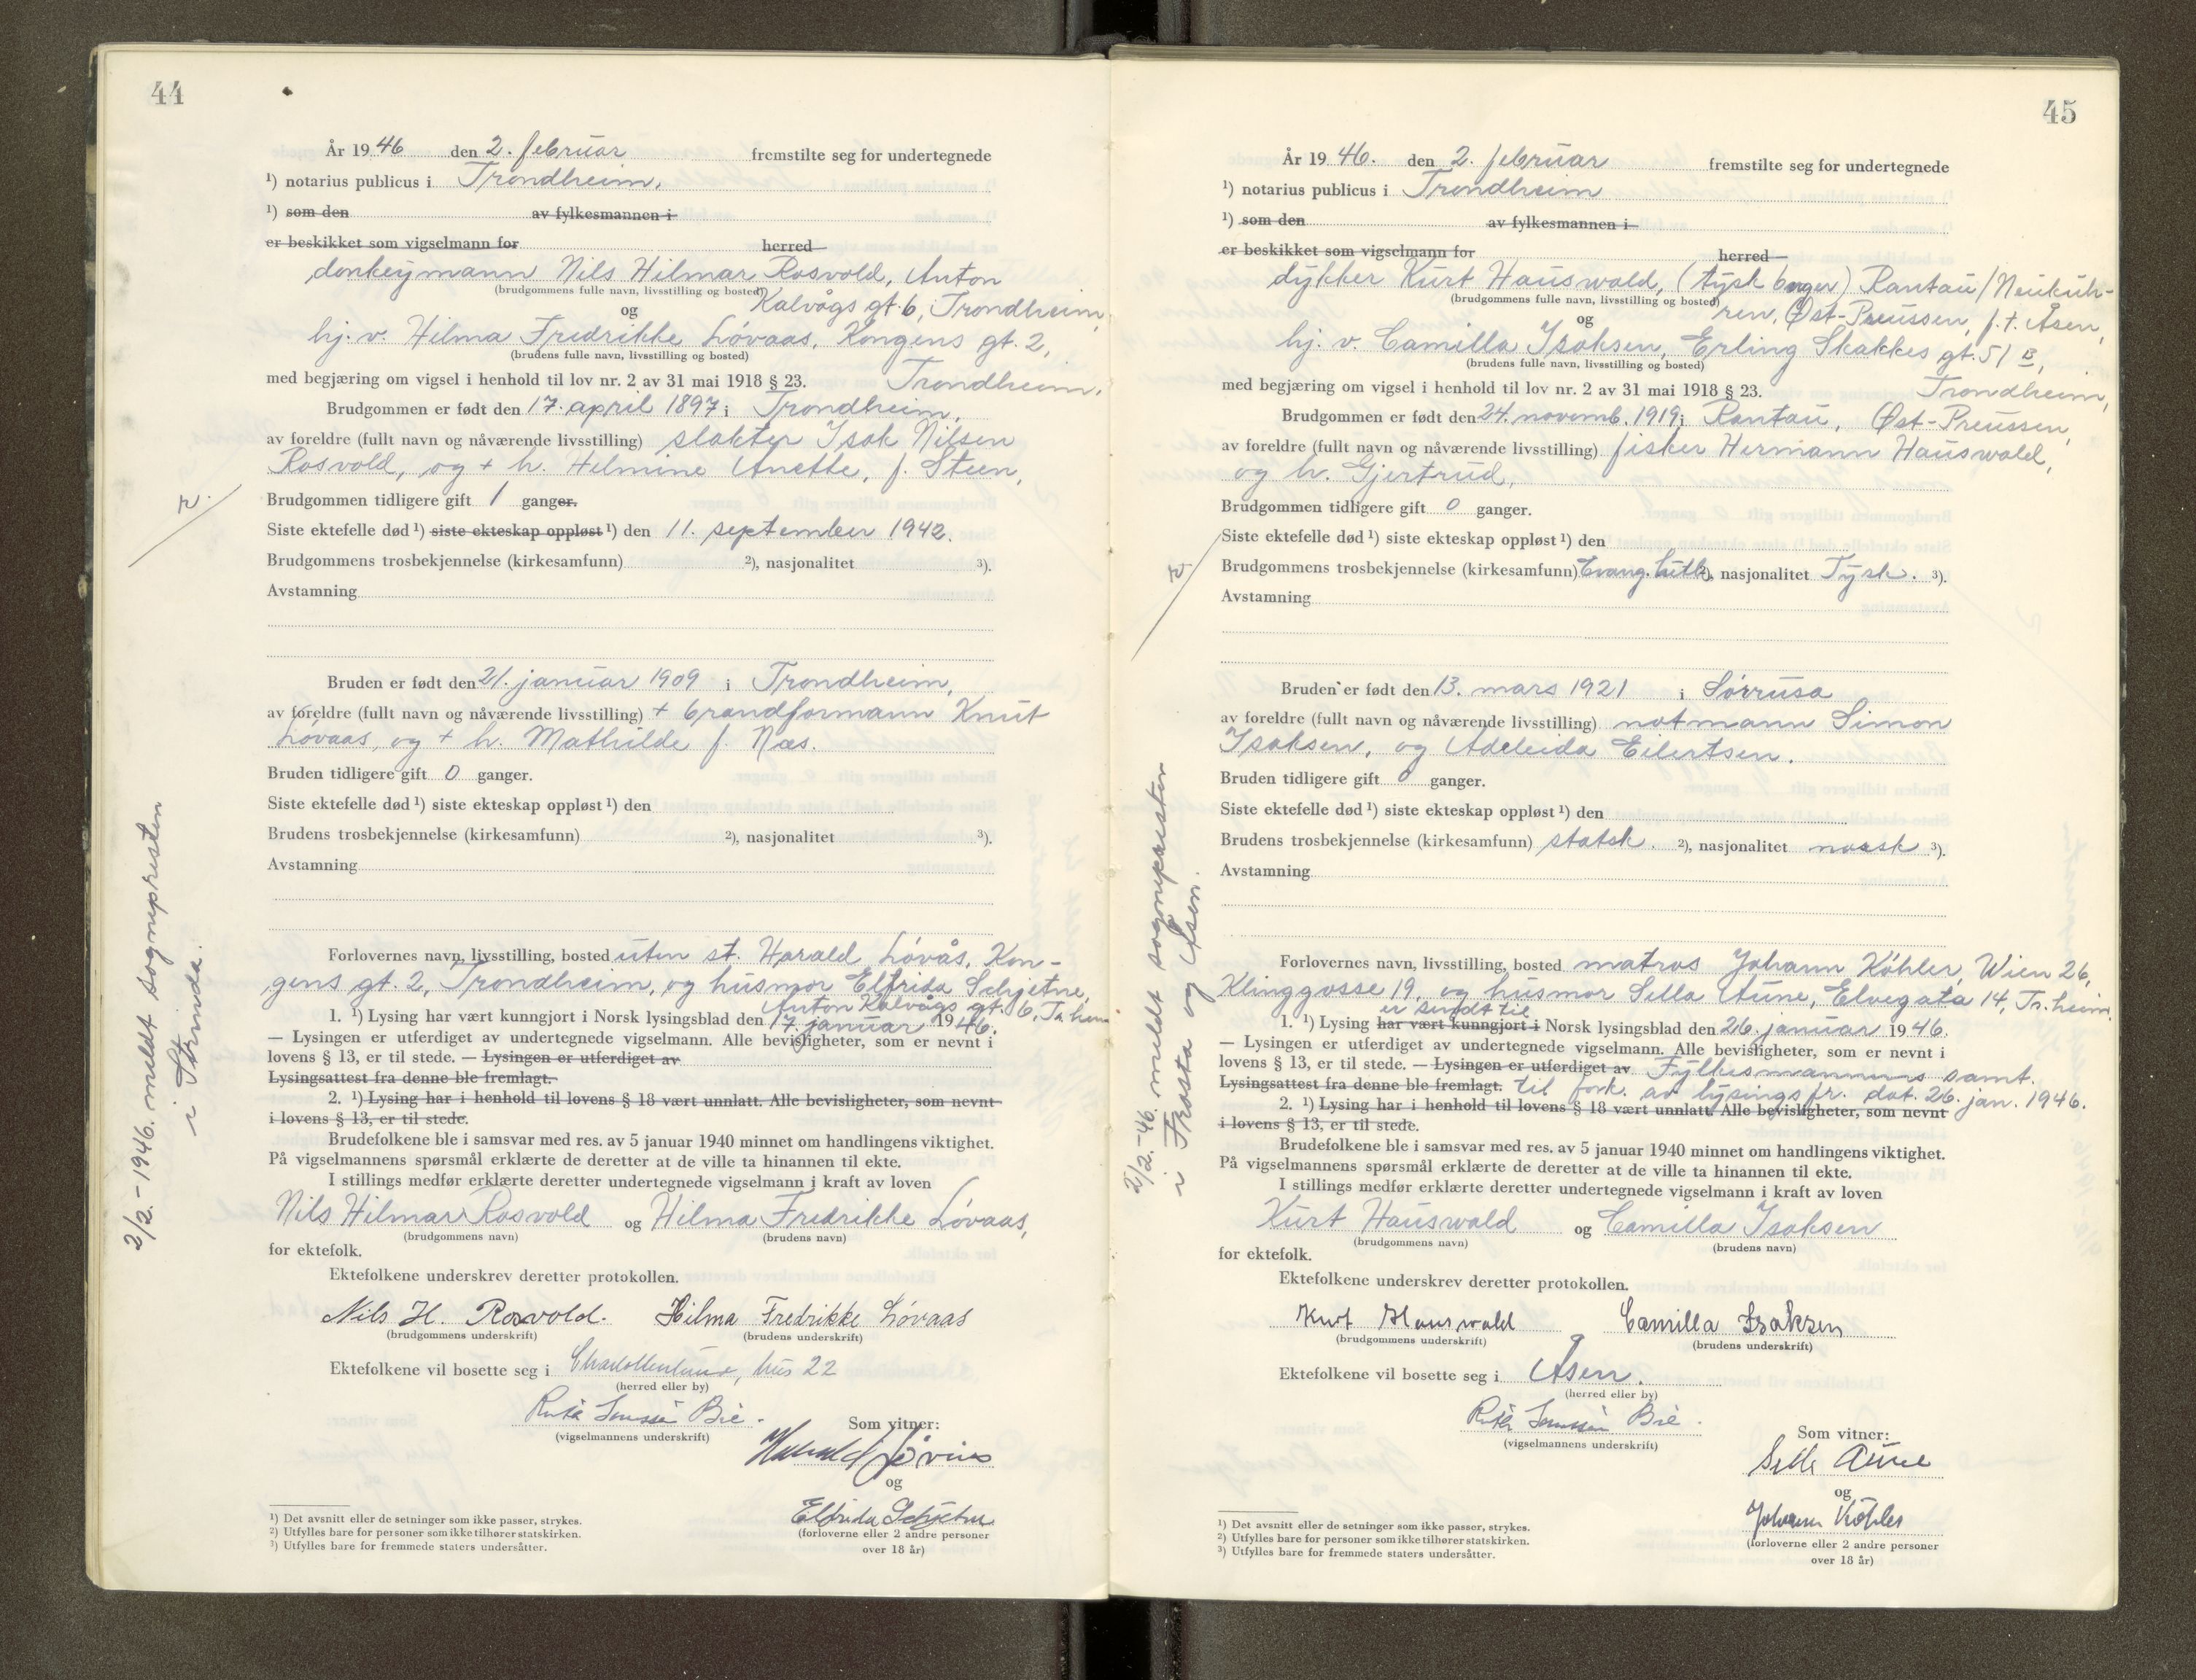 44
År 1946 den 2. februar fremstilte seg for undertegnede
¹) notarius publicus i Trondheim.
¹) som den av fylkesmannen i
er beskikket som vigselmann for herred
donkeymann Nils Hilmar Rosvold, Anton
(brudgommens fulle navn, livsstilling og bosted)
Kalvågs gt. 6, Trondheim,
og
hj. v. Hilma Fredrikke Lóvaas, Kongens gt. 2,
(brudens fulle navn, livsstilling og bosted)
Trondheim.
med begjæring om vigsel i henhold til lov nr. 2 av 31 mai 1918 § 23.
Brudgommen er født den 17. april 1897 i Trondheim,
av foreldre (fullt navn og nåværende livsstilling) slakter Isak Nilsen
Rosvold, og + h. Helmine Anette, f. Steen,
Brudgommen tidligere gift 1 ganger.
Siste ektefelle død ¹) siste ekteskap oppløst ¹) den 11. september 1942.
Brudgommens trosbekjennelse (kirkesamfunn) ²), nasjonalitet ³).
Avstamning
Bruden er født den 21. januar 1909 i Trondheim,
av foreldre (fullt navn og nåværende livsstilling) + brandformann Knut
Lóvaas, og + h. Mathilde f. Næs.
Bruden tidligere gift 0 ganger.
Siste ektefelle død ¹) siste ekteskap oppløst ¹) den
Brudens trosbekjennelse (kirkesamfunn) ²), nasjonalitet ³).
Avstamning
Forlovernes navn, livsstilling, bosted uten st. Harald Lóvås, Kon-
gens gt. 2, Trondheim, og husmor Elfrida Schjetne,
Anton Kalvågs gt. 6, Tr.heim
1. ¹) Lysing har vært kunngjort i Norsk lysingsblad den 17. januar 1946.
— Lysingen er utferdiget av undertegnede vigselmann. Alle bevisligheter, som er nevnt i
lovens § 13, er til stede. — Lysingen er utferdiget av
Lysingsattest fra denne ble fremlagt.
2. ¹) Lysing har i henhold til lovens § 18 vært unnlatt. Alle bevisligheter, som nevnt
i lovens § 13, er til stede.
Brudefolkene ble i samsvar med res. av 5 januar 1940 minnet om handlingens viktighet.
På vigselmannens spørsmål erklærte de deretter at de ville ta hinannen til ekte.
I stillings medfør erklærte deretter undertegnede vigselmann i kraft av loven
Nils Hilmar Rosvold og Hilma Fredrikke Lóvaas,
(brudgommens navn) (brudens navn)
for ektefolk.
Ektefolkene underskrev deretter protokollen.
Nils H. Rosvold. Hilma Fredrikke Lóvaas
(brudgommens underskrift) (brudens underskrift)
Ektefolkene vil bosette seg i Charlottenlund, hus 22
(herred eller by)
Bie.
(vigselmannens underskrift)
Som vitner:
Harald
og
Elfrida Schjetne
(forloverne eller 2 andre personer
over 18 år)
¹) Det avsnitt eller de setninger som ikke passer, strykes.
²) Utfylles bare for personer som ikke tilhører statskirken.
³) Utfylles bare for fremmede staters undersåtter.
2/2.-1946. meldt sognepresten
i Strinda.
45
År 1946. den 2. februar fremstilte seg for undertegnede
¹) notarius publicus i Trondheim
¹) som den av fylkesmannen i
er beskikket som vigselmann for herred
dykker Kurt Hauswald, (tysk borger) Rantau/Neukuh-
(brudgommens fulle navn, livsstilling og bosted)
ren, Øst-Preussen, f.t. Åsen,
og
hj. v. Camilla Isaksen, Erling Skakkes gt. 51 B,
(brudens fulle navn, livsstilling og bosted)
Trondheim,
med begjæring om vigsel i henhold til lov nr. 2 av 31 mai 1918 § 23.
Brudgommen er født den 24. novemb. 1919 i Rantau, Øst-Preussen,
av foreldre (fullt navn og nåværende livsstilling) fisker Hermann Hauswald,
og h. Gjertrud,
Brudgommen tidligere gift 0 ganger.
Siste ektefelle død ¹) siste ekteskap oppløst ¹) den
Brudgommens trosbekjennelse (kirkesamfunn) Evang. luth. ²), nasjonalitet Tysk. ³).
Avstamning
Bruden er født den 13. mars 1921 i Sórrusa
av foreldre (fullt navn og nåværende livsstilling) notmann Simon
Isaksen, og Adeleida Eilertsen.
Bruden tidligere gift 0 ganger.
Siste ektefelle død ¹) siste ekteskap oppløst ¹) den
Brudens trosbekjennelse (kirkesamfunn) statsk. ²), nasjonalitet norsk ³).
Avstamning
Forlovernes navn, livsstilling, bosted matros Johann Köhler, Wien 26,
Klinggasse 19, og husmor Sella Aune, Elvegata 14, Tr.heim.
er sendt til
1. ¹) Lysing har vært kunngjort i Norsk lysingsblad den 26. januar 1946.
— Lysingen er utferdiget av undertegnede vigselmann. Alle bevisligheter, som er nevnt i
lovens § 13, er til stede. — Lysingen er utferdiget av Fylkesmannens samt.
Lysingsattest fra denne ble fremlagt. til fork. av lysingsfr. dat. 26. jan. 1946.
2. ¹) Lysing har i henhold til lovens § 18 vært unnlatt. Alle bevisligheter, som nevnt
i lovens § 13, er til stede.
Brudefolkene ble i samsvar med res. av 5 januar 1940 minnet om handlingens viktighet.
På vigselmannens spørsmål erklærte de deretter at de ville ta hinannen til ekte.
I stillings medfør erklærte deretter undertegnede vigselmann i kraft av loven
Kurt Hauswald og Camilla Isaksen
(brudgommens navn) (brudens navn)
for ektefolk.
Ektefolkene underskrev deretter protokollen.
Kurt Hauswald Camilla Isaksen
(brudgommens underskrift) (brudens underskrift)
Ektefolkene vil bosette seg i Åsen.
(herred eller by)
Bie.
(vigselmannens underskrift)
Som vitner:
Sella Aune
og
Johann Köhler
(forloverne eller 2 andre personer
over 18 år)
¹) Det avsnitt eller de setninger som ikke passer, strykes.
²) Utfylles bare for personer som ikke tilhører statskirken.
³) Utfylles bare for fremmede staters undersåtter.
2/2.-46. meldt sogneprester
i Frosta og Åsen.